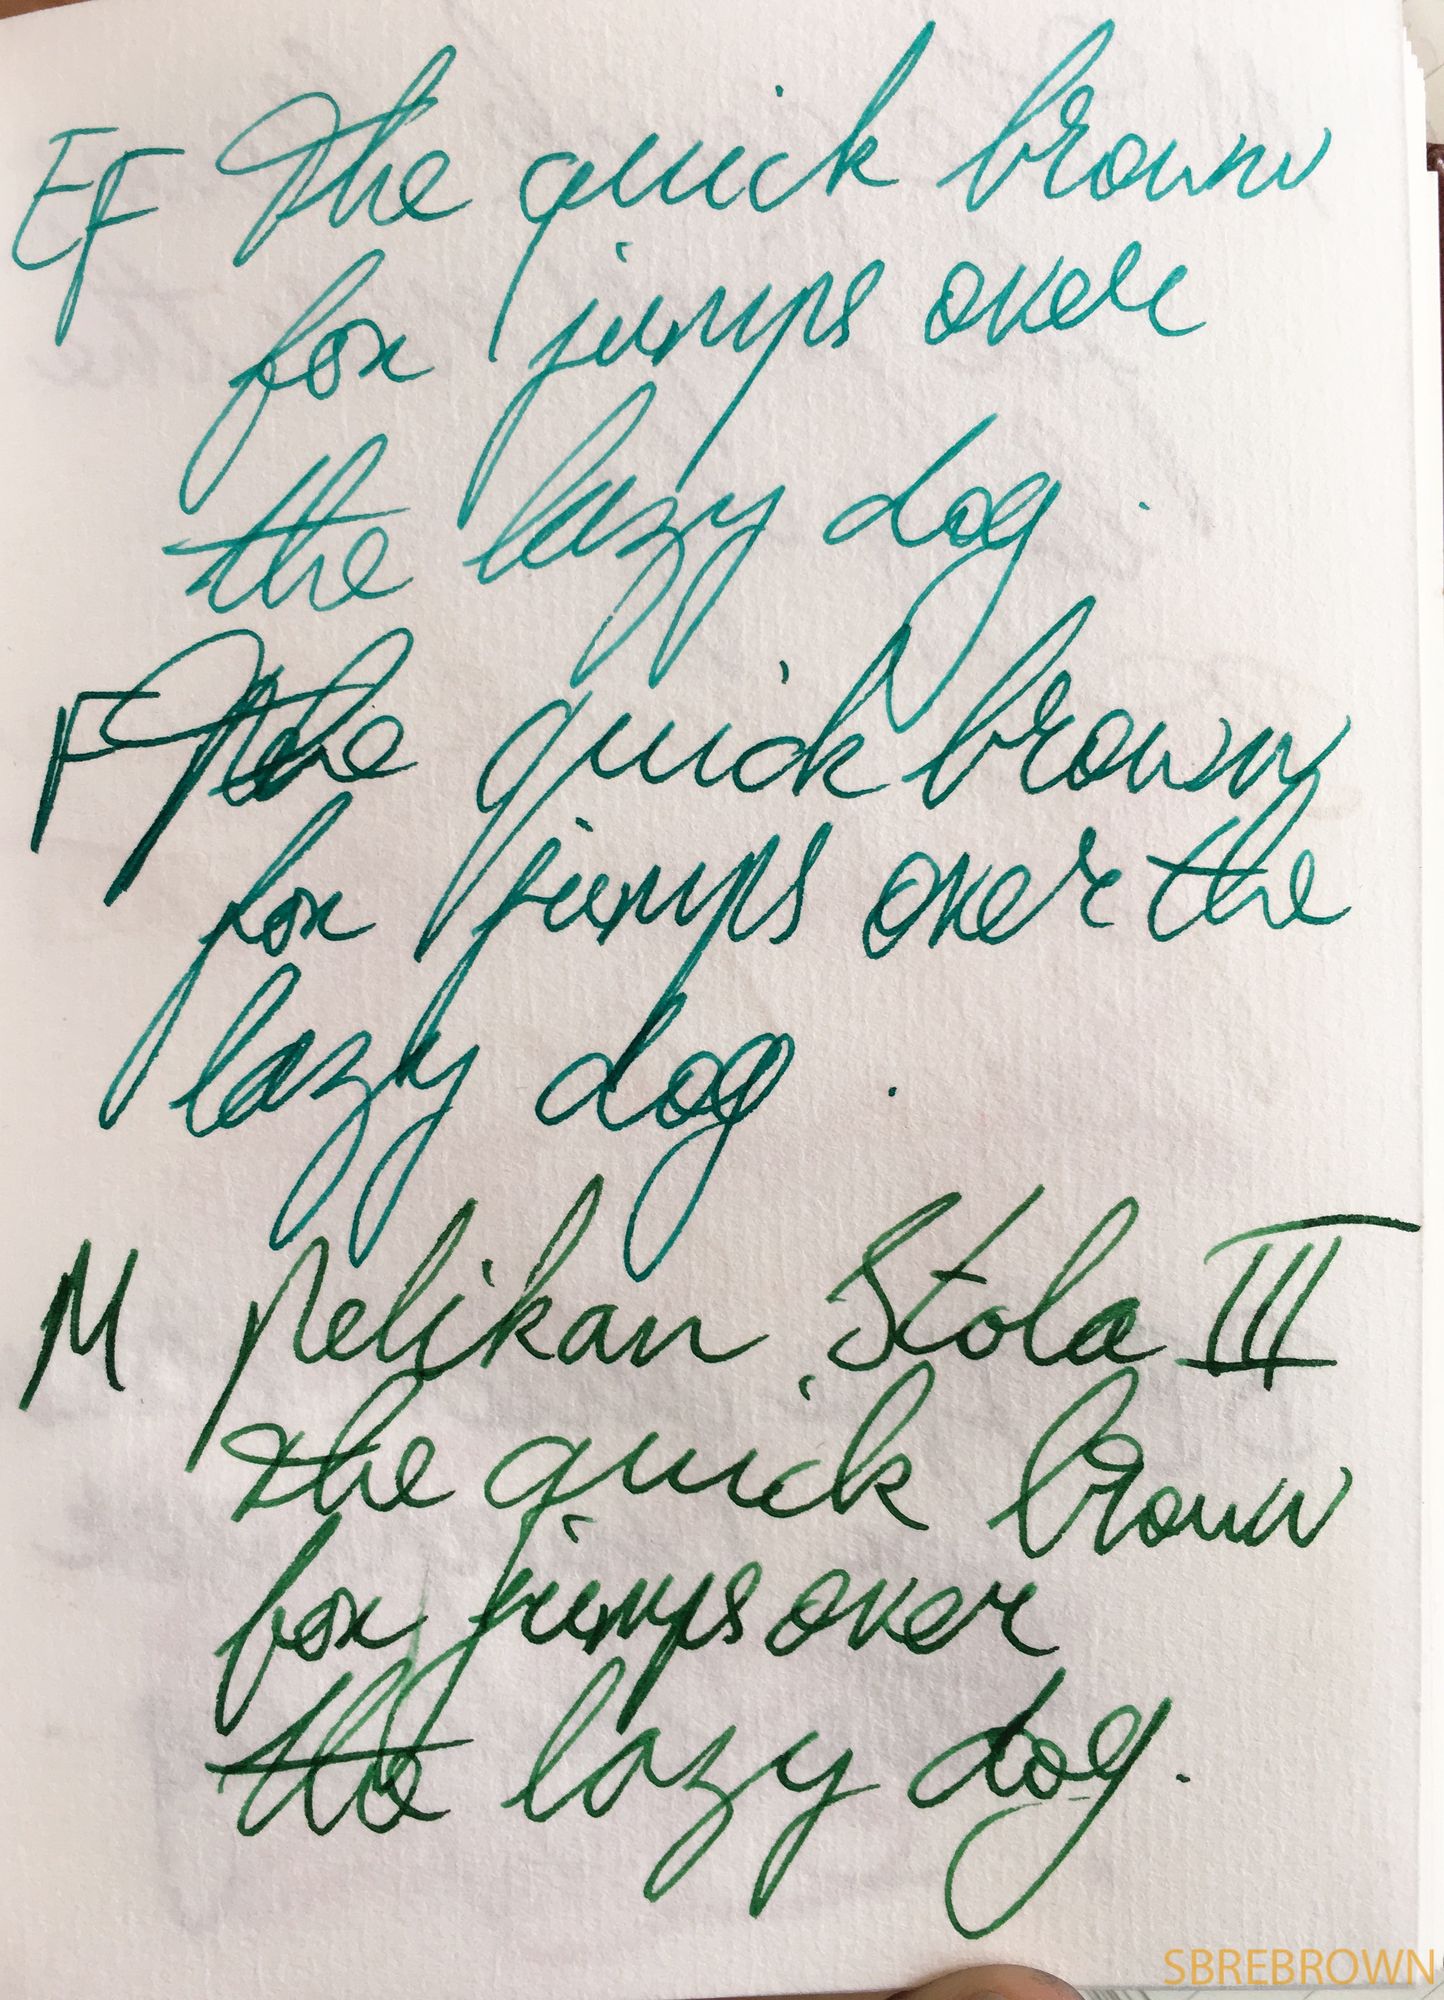 EF The quick brown
fox jumps over
the lazy dog.
F The quick brown
fox jumps over the
lazy dog.
M Pelikan Stola III
the quick brown
fox jumps over
the lazy dog.
SBREBROWN